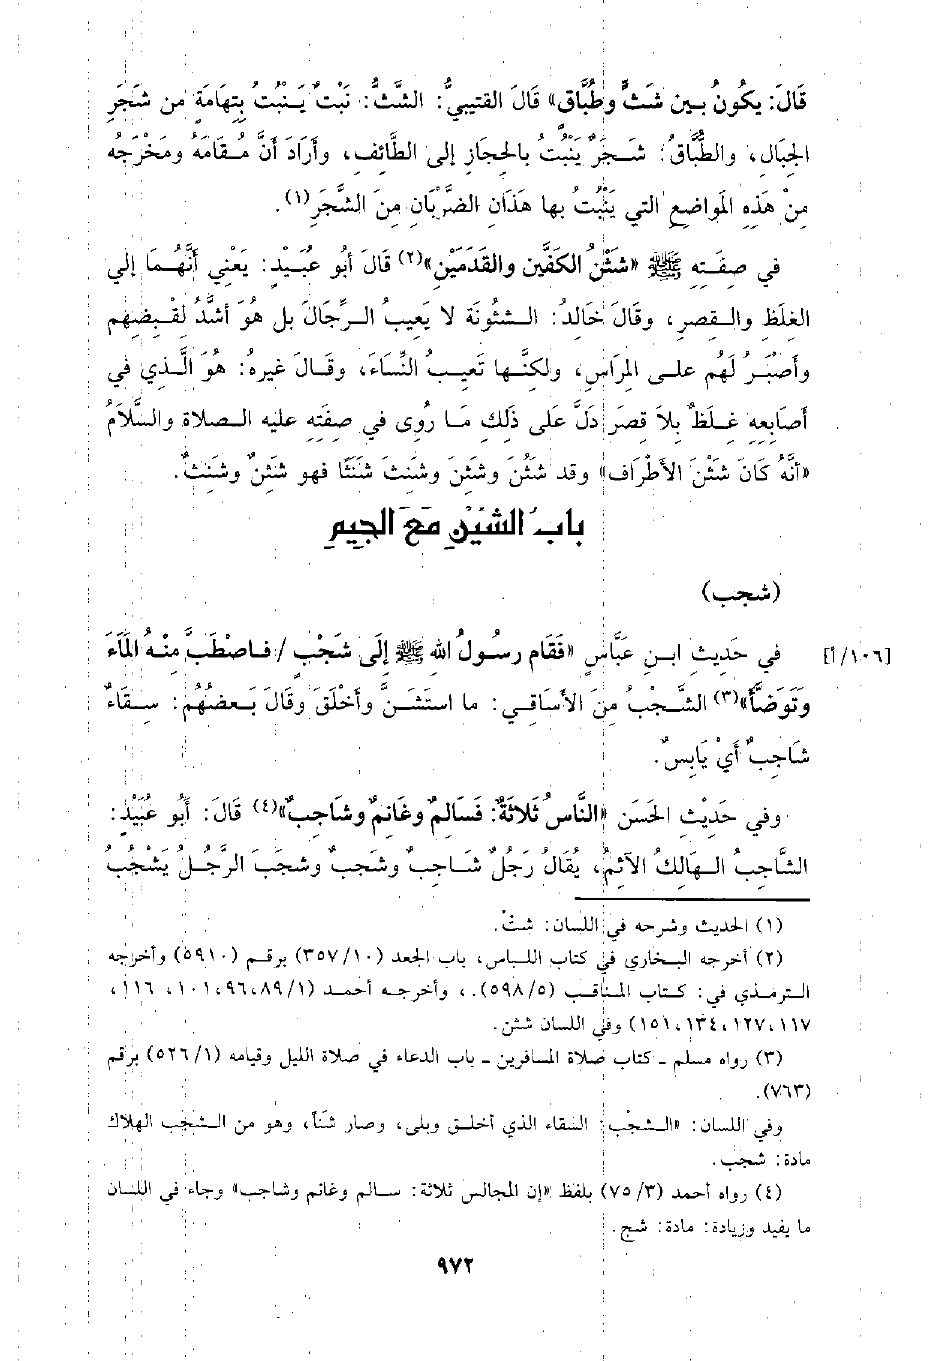 قَالَ: يكُونُ بين شَثٍّ وطُبَّاق» قَالَ القتيبيُّ: الشَّثُّ: نَبْتٌ يَنْبُتُ بِتهَامَةٍ من شَجَرِ
الجبَال، والطُّبَّاقُ: شَجَرٌ يَنْبُت بالحجَاز إلى الطَّائف، وأرَادَ أنَّ مُقَامَهُ ومَخْرَجهُ
منْ هَذه المَواضع التي يَنْبُتُ بها هَذَان الضرْبَان منَ الشَّجَر(١).
في صفَته ﷺ «شَثْنُ الكَفَّين والقَدَمَيْن»(٢) قَالَ أبُو عبَيْد: يَعْني أنَّهُمَا إلي
الغلَظ والقصر، وقَالَ خَالدُ: الشثُونَة لا يَعيبُ الرِّجَالَ بل هُوَ أشَدُّ لقَبضهم
وأصْبَرُ لَهُم على المرَاس، ولكنَّها تَعيبُ النِّسَاءَ، وقَالَ غيرهُ: هُوَ الَّذي في
أصَابعه غلَظٌ بلاَ قصَر دَلَّ عَلى ذَلكَ مَا رُوى في صفَته عليه الصلاة والسَّلاَمُ
«أنَّهُ كَانَ شَثْنَ الأطْرَاف» وقد شَثُنَ وشَثَنَ وشَنثَ شَنَثًا فهو شَثنٌ وشَنثٌ.
بابُ الشيْنِ مَعَ الجِيمِ
(شجب)
[١٠٦/أ] في حَديث ابن عَبَّاسٍ «فَقَام رسُولُ الله ﷺ إلَى شَجْب / فاصْطَبَّ منْهُ المَاءَ
وَتَوَضَّأَ»(٣) الشَّجْبُ منَ الأسَاقي: ما استَشَنَّ وأخْلَقَ وقَالَ بَعضهُم: سقَاءٌ
شاجبٌ أيْ يَابسٌ.
وفي حَديْث الحَسَن «النَّاسُ ثَلاثَةٌ: فَسَالمٌ وغَانمٌ وشَاجبٌ»(٤) قَالَ: أبُو عُبَيْد:
الشَّاجبُ الهَالكُ الآثمُ، يقَالُ رَجلٌ شَاجبٌ وشَجبٌ وشجَبَ الرَّجُل يَشْجُبُ
(١) الحديث وشرحه في اللسان: شث.
(٢) أخرجه البخاري في كتاب اللباس، باب الجعد (٣٥٧/١٠) برقم (٥٩١٠) وأخرجه
الترمذي في: كتاب المناقب (٥٩٨/٥). ، وأخرجه أحمد (٨٩/١، ٩٦، ١٠١، ١١٦،
١١٧، ١٢٧، ١٣٤، ١٥١) وفي اللسان شثن.
(٣) رواه مسلم - كتاب صلاة المسافرين - باب الدعاء في صلاة الليل وقيامه (٥٢٦/١) برقم
(٧٦٣).
وفي اللسان: «الشجْب: السقاء الذي أخلق وبلى، وصار شنًا، وهو من الشجب الهلاك
مادة: شجب.
(٤) رواه أحمد (٧٥/٣) بلفظ «إن المجالس ثلاثة: سالم وغانم وشاجب» وجاء في اللسان
ما يفيد وزيادة: مادة: شج.
٩٧٢